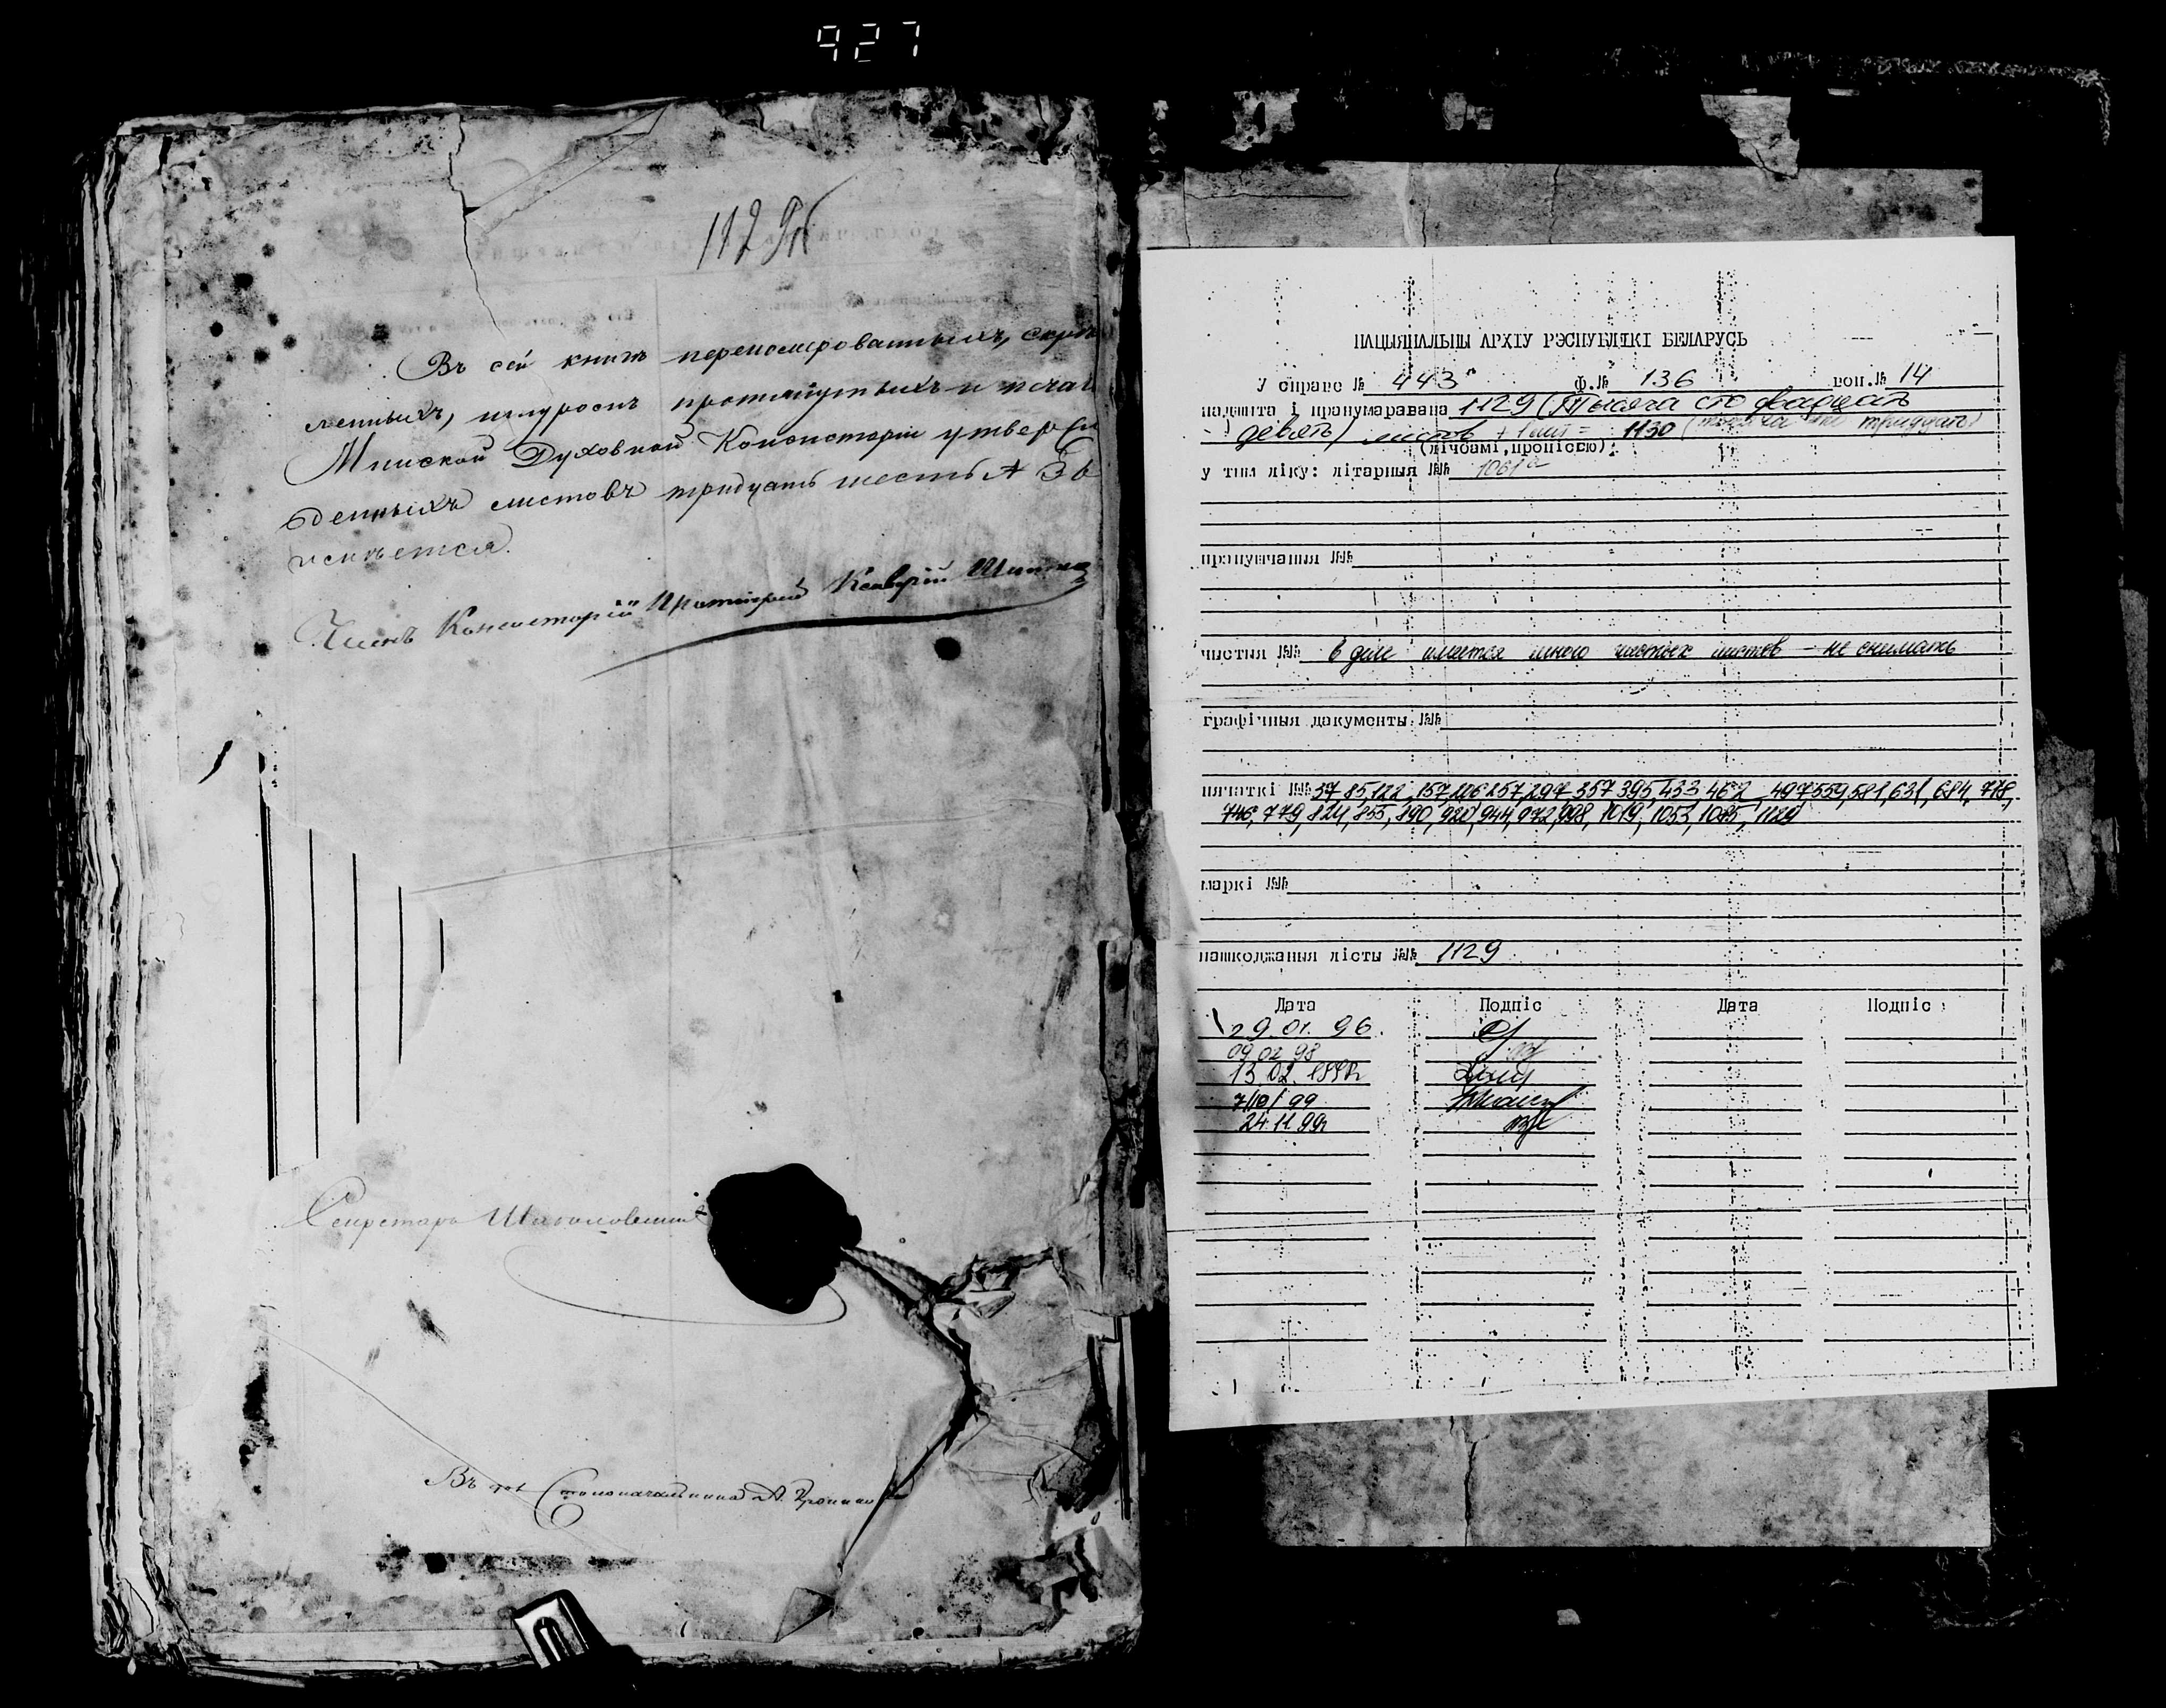 927
1129
Въ сей книгѣ перенумерованныхъ, скрѣп
ленныхъ, шнуромъ протянутыхъ и печат
Минской Духовной Консисторіи утверж
денныхъ листовъ тридцать шесть
исчисляется.
Членъ Консисторіи Протоіерей
Секретарь
Въ дол. Столоначальника А.
НАЦЫЯНАЛЬНЫ АРХІЎ РЭСПУБЛІКІ БЕЛАРУСЬ
У справе № 443 ф.№ 136 воп.№ 14
падшыта і пранумаравана 1129 (Тысяча сто двадцать
девять) листов + 1 лит = 1130 (тысяча сто тридцать)
(лічбамі, пропіссю)
у тым ліку: літарныя №№ 1061а
прапушчаныя №№
чыстыя №№ в деле имеется много чистых листов – не снимать
графічныя дакументы №№
пячаткі №№ 37, 85, 122, 157, 206, 257, 297, 357, 395, 433, 462, 497, 559, 581, 631, 684, 718,
746, 779, 824, 855, 890, 920, 944, 972, 998, 1019, 1053, 1085, 1129
маркі №№
пашкоджаныя лісты №№ 1129
Дата Подпіс Дата Подпіс
29.01.96.
09.02.98
13.02.
7/10/99
24.11.99г